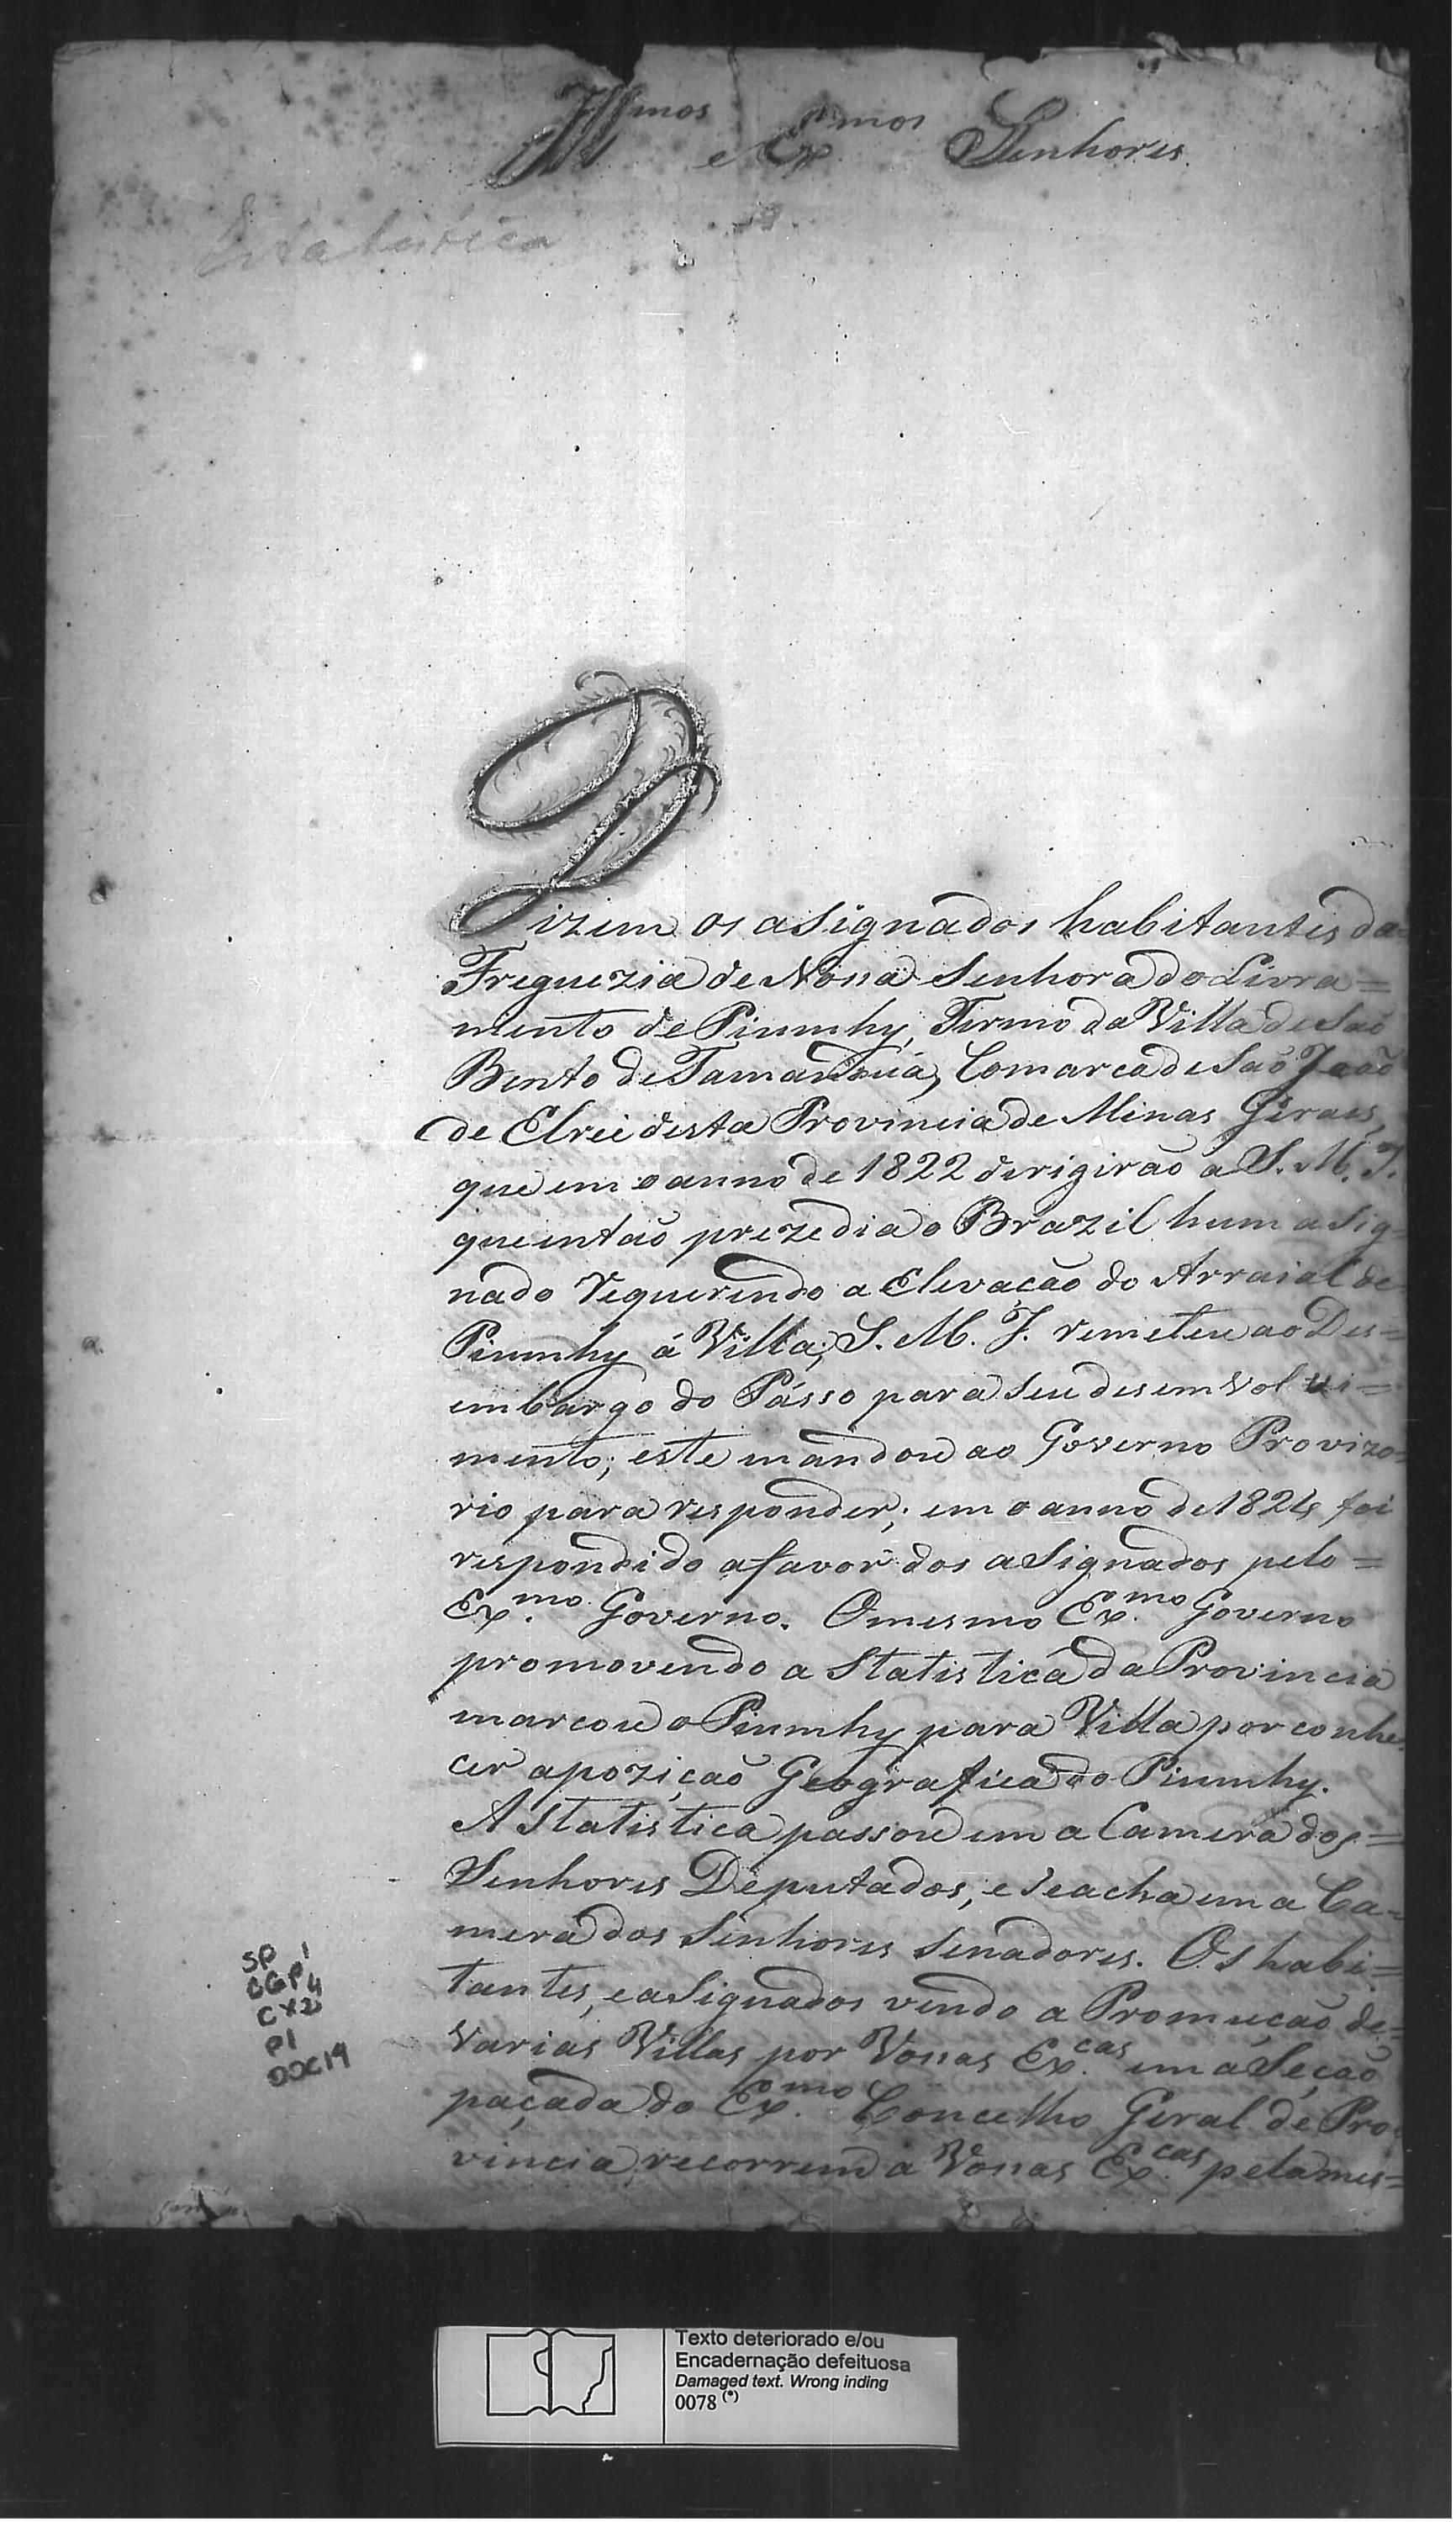 Ill.mos e Ex.mos Senhores.
Estatistica
Dizem os asignados habitantes da
Freguezia de Nossa Senhora do Livra=
mento de Piumhy, Termo da Villa de Saõ
Bento de Tamanduá, Comarca de Saõ Joaõ
de Elrei desta Provincia de Minas Geraes,
que em o anno de 1822 derigiraõ a S. M. I.
que intaõ prezedia o Brazil hum asig=
nado requerendo a Elevaçaõ do Arraial de
Piumhy á Villa; S. M. I. remeteu ao Des=
embargo do Pásso para seu desemvolvi=
mento; este mandou ao Governo Provizo=
rio para responder; em o anno de 1824 foi
respondido a favor dos asignados pelo=
Ex.mo Governo. O mesmo Ex.mo Governo
promovendo a Statistica da Provincia
marcou o Piumhy para Villa por conhe=
cer a poziçaõ Geografica do Piumhy.
A Statistica passou em a Camera dos=
Senhores Deputados, e se acha em a Ca=
mera dos Senhores Senadores. Os habi=
tantes, e asignados vendo a Promuçaõ de=
varias Villas por Vossas Ex.cas em a Seçaõ
paçada do Ex.mo Concelho Geral de Pro=
vincia recorrem a Vossas Ex.cas pela mes=
SP 1
CGP 4
CX 2
P1
DOC 19
Texto deteriorado e/ou
Encadernação defeituosa
Damaged text. Wrong inding
0078 (*)